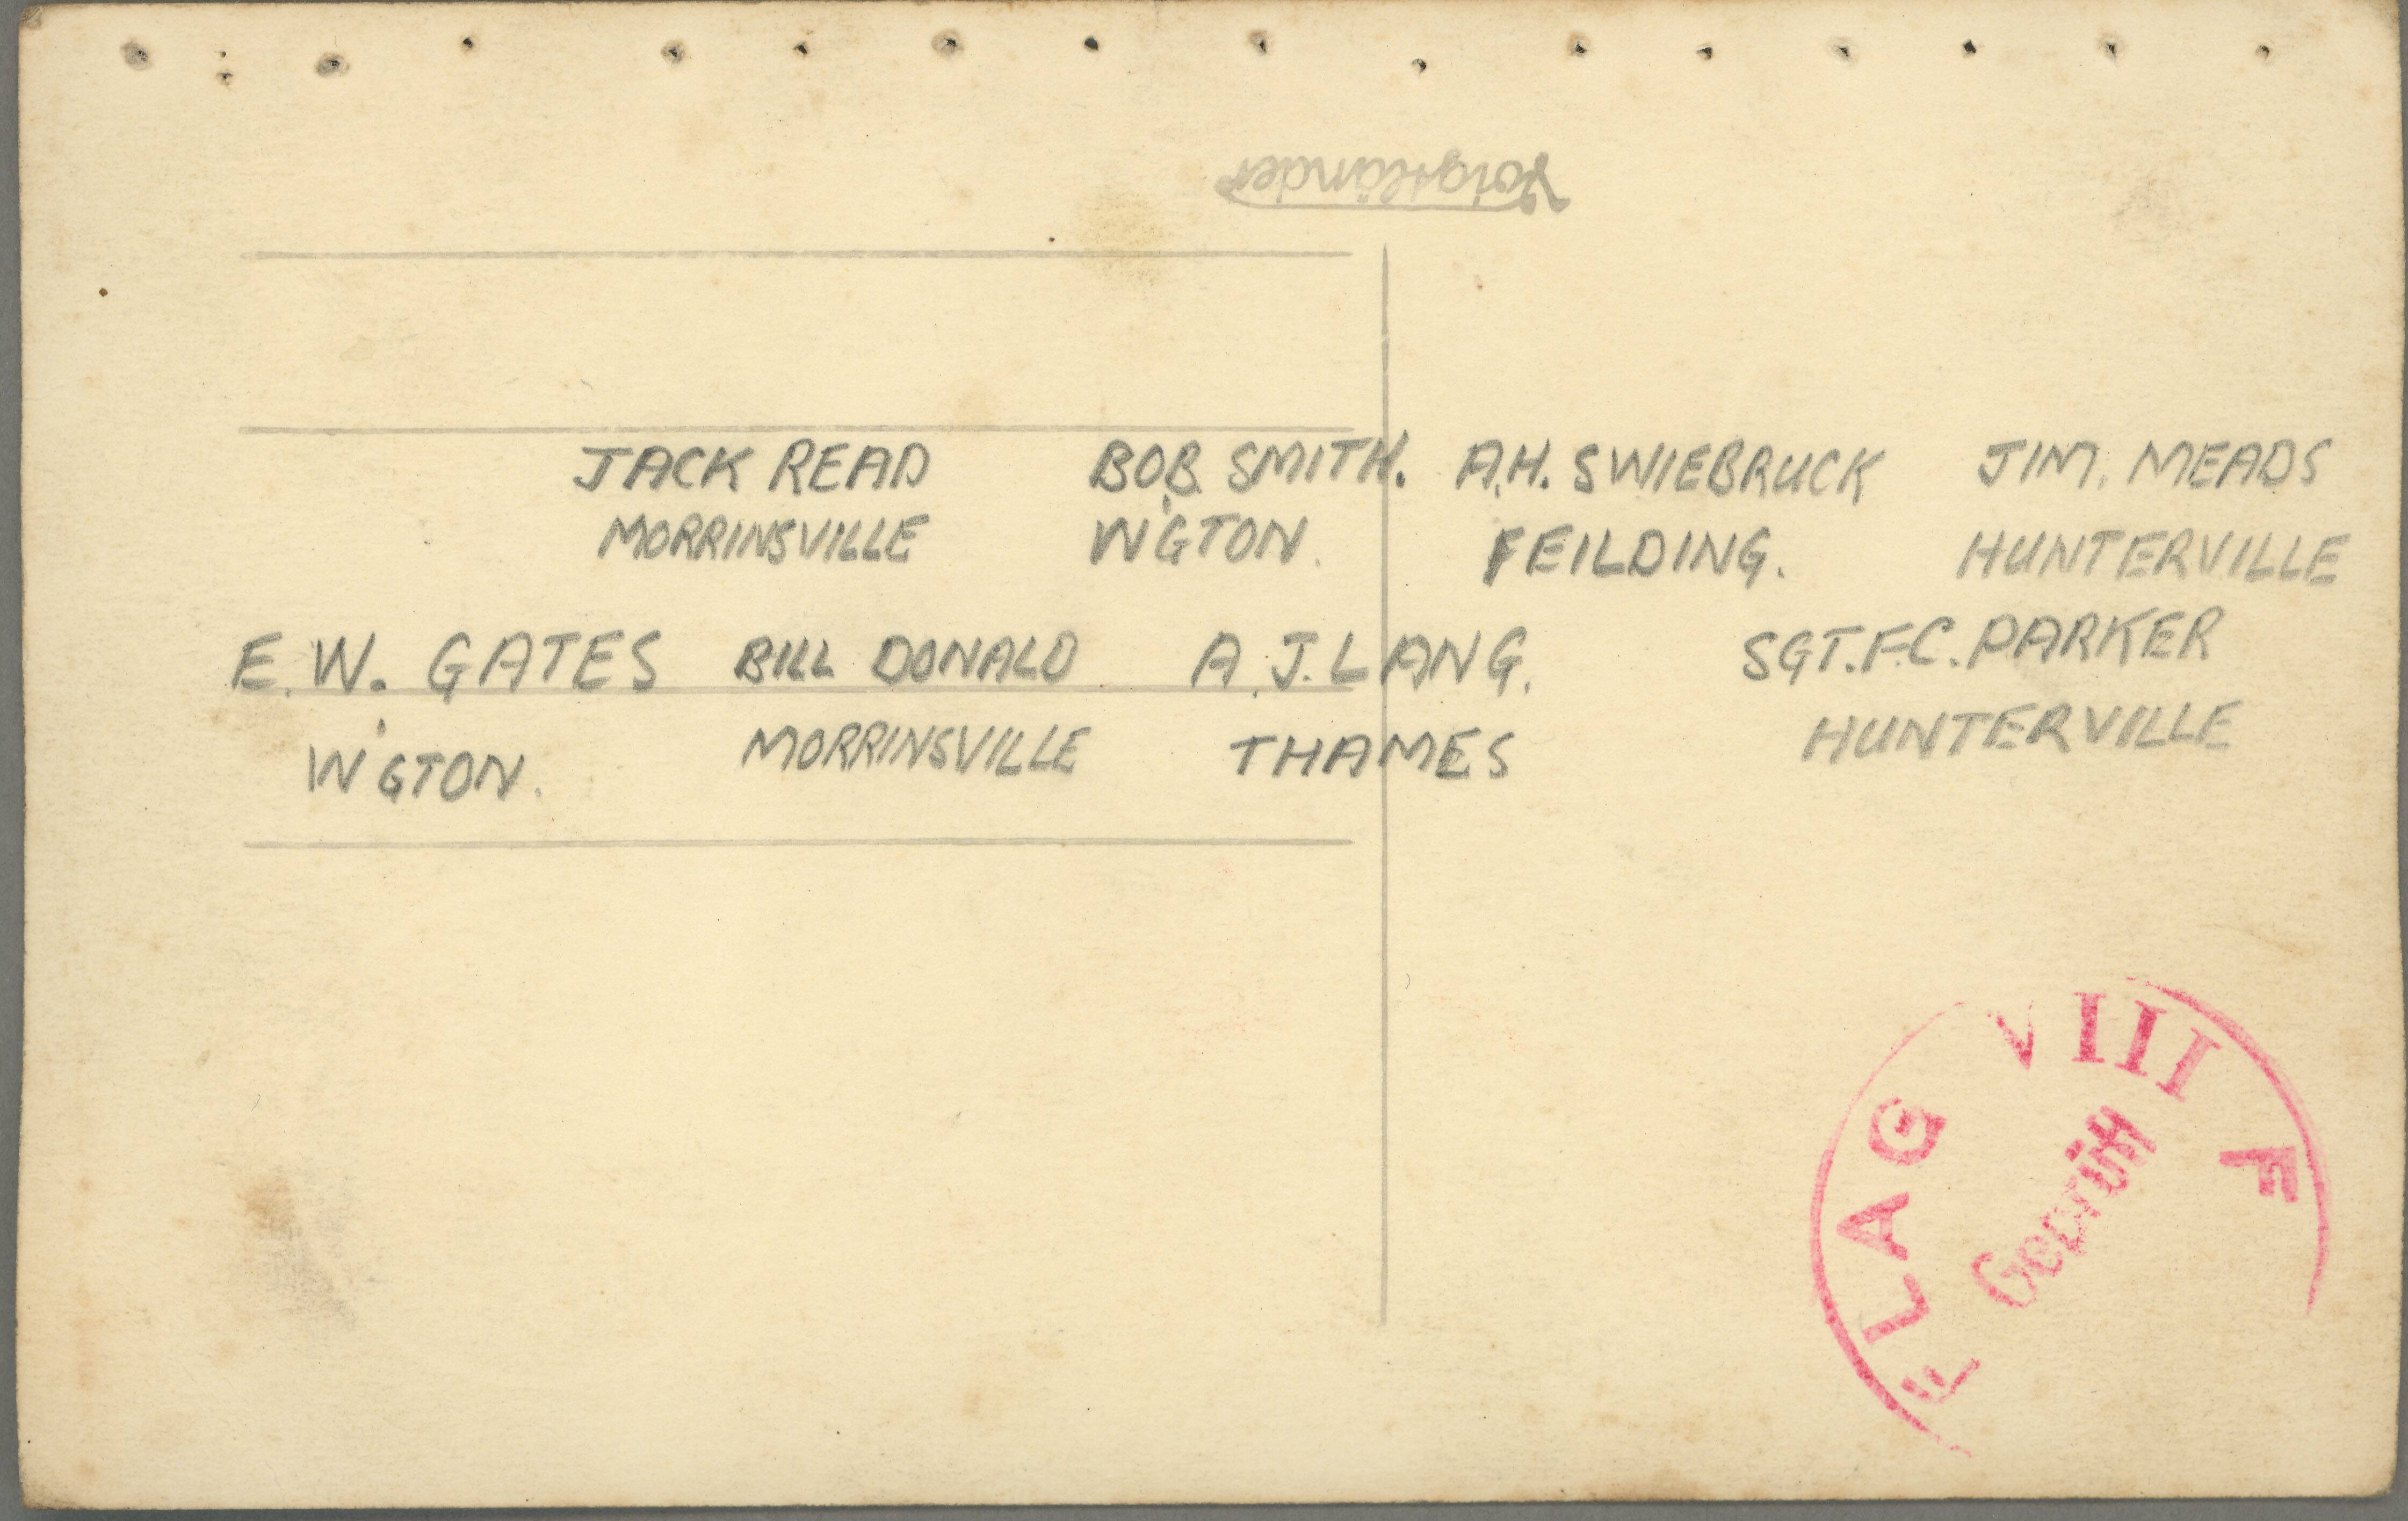 Voigtländer
JACK READ BOB. SMITH. A.H. SWIEBRUCK JIM. MEADS
MORRINSVILLE W'GTON. FEILDING. HUNTERVILLE
E.W. GATES BILL DONALD A.J. LANG. SGT. F.C. PARKER
W'GTON. MORRINSVILLE THAMES HUNTERVILLE
OFLAG VIII F
Geprüft